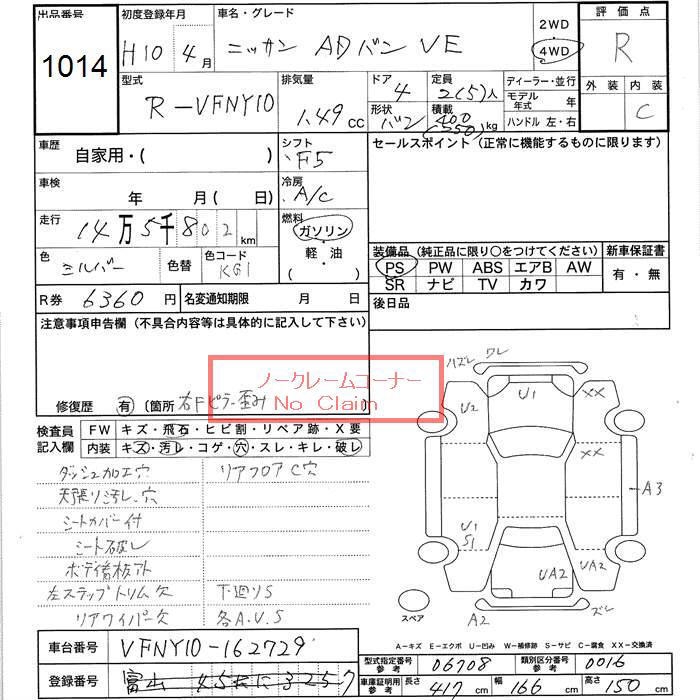 出品番号 1014
初度登録年月 H10年 4月
車名・グレード ニッサン ADバン VE
2WD
4WD
評価点 R
外装 内装 C
型式 R-VFNY10
排気量 1.49 cc
ドア 4
形状 バン
定員 2(5)人
積載 400(250)kg
ディーラー・並行
モデル年式 年
ハンドル 左・右
車歴 自家用・( )
シフト F5
セールスポイント(正常に機能するものに限ります)
車検 年 月( 日)
冷房 A/C
走行 14万5千802km
燃料 ガソリン・軽油( )
色 シルバー 色替 色コード KG1
装備品(純正品に限り○をつけてください) 新車保証書
PS PW ABS エアB AW 有・無
SR ナビ TV カワ
R券 6360円 名変通知期限 月 日
後日品
注意事項申告欄(不具合内容等は具体的に記入して下さい)
ノークレームコーナー
No Claim
修復歴 有〔箇所 右Fピラー歪み
検査員記入欄 FW キズ・飛石・ヒビ割・リペア跡・X要
内装 キズ・汚レ・コゲ・穴・スレ・キレ・破レ
ダッシュ加工穴 リアフロアC穴
天張リ汚レ、穴
シートカバー付
シート破レ
ボディ看板外
左ステップトリム欠 下廻りS
リアワイパー欠 各A.U.S
ハズレ ワレ
U1
XX
U2
XX
A3
U1
S1
UA2
UA2
A2
ズレ
スペア
A-キズ E-エクボ U-凹み W-補修跡 S-サビ C-腐食 XX-交換済
車台番号 VFNY10-162729
型式指定番号参考 06708 類別区分番号参考 0016
登録番号 富山
車庫証明用参考 長さ 417cm 幅 166cm 高さ 150cm